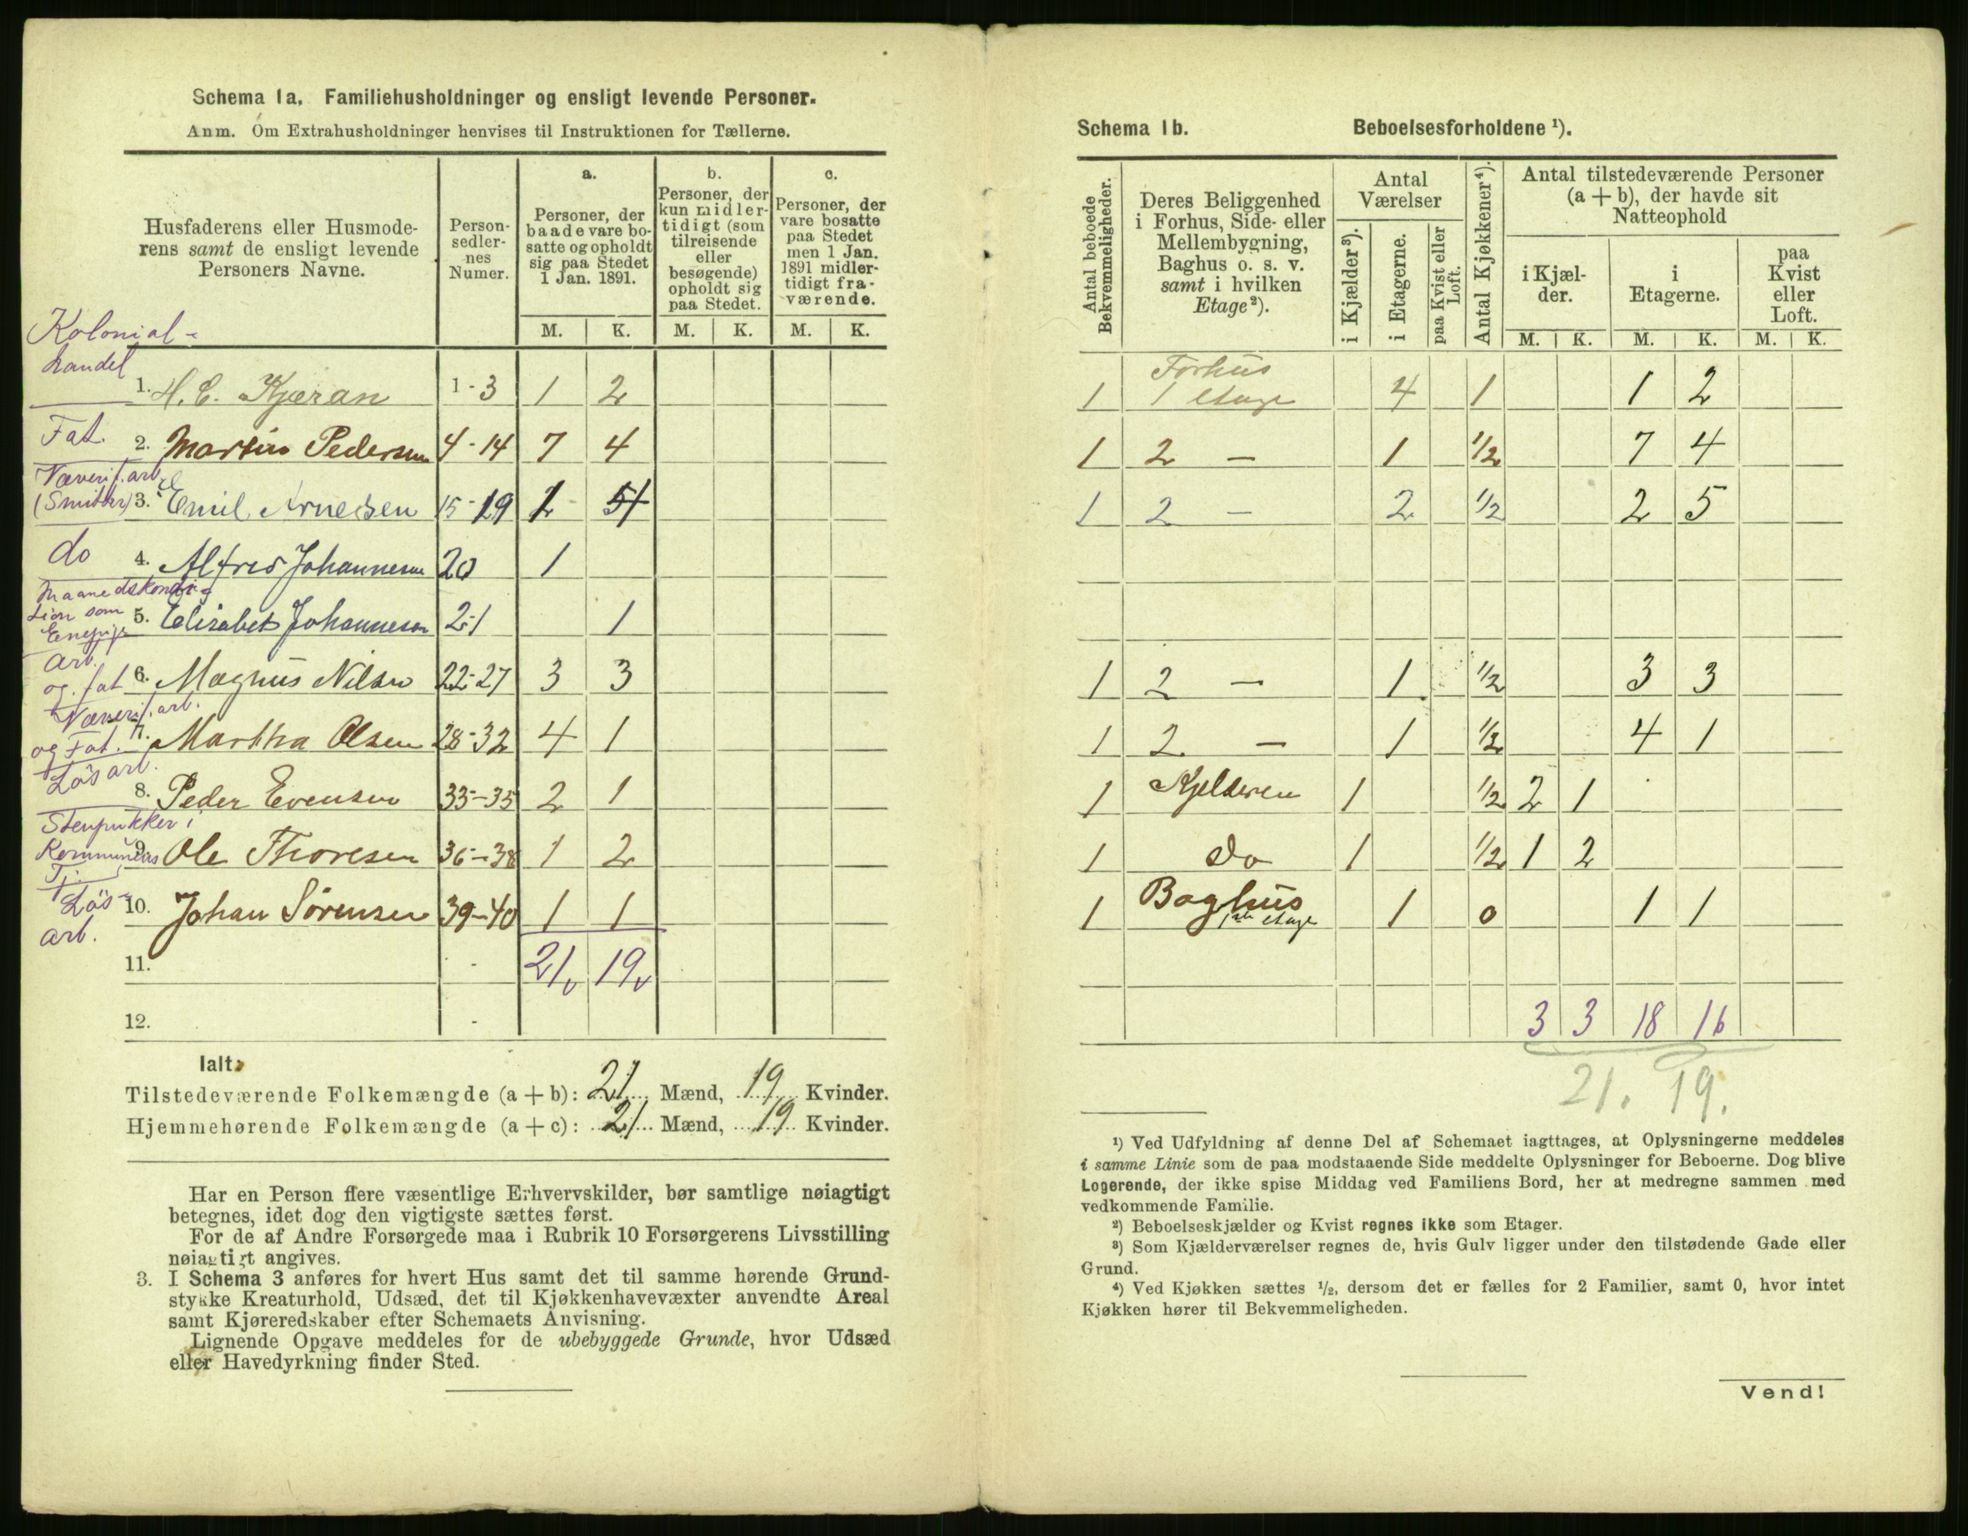 Schema 1a. Familiehusholdninger og ensligt levende Personer.
Anm. Om Extrahusholdninger henvises til Instruktionen for Tællerne.
Husfaderens eller Husmode-
rens samt de ensligt levende
Personers Navne.
Person-
sedler-
nes
Numer.
a.
Personer, der
baade vare bo-
satte og opholdt
sig paa Stedet
1 Jan. 1891.
b.
Personer, der
kun midler-
tidigt (som
tilreisende
eller
besøgende)
opholdt sig
paa Stedet.
c.
Personer, der
vare bosatte
paa Stedet
men 1 Jan.
1891 midler-
tidigt fra-
værende.
M. K. M. K. M. K.
Kolonial-
handel
1. H. C. Kjæran 1-3 1 2
Fat.
2. Martin Pedersen 4-14 7 4
Væverif. arb.
(Smither) 3. Emil Arnesen 15-19 1 5
do 4. Alfred Johannesen 20 1
Maanedskondi-
tion som
Enepige
5. Elisabet Johannesen 21 1
Arb.
og. fat 6. Magnus Nilsen 22-27 3 3
Væverif. arb.
og Fat. 7. Martha Olsen 28-32 4 1
Løsarb.
8. Peder Evensen 33-35 2 1
Stenpukker i
Kommunens
Tj.
9. Ole Thoresen 36-38 1 2
Løs-
arb.
10. Johan Sørensen 39-40 1 1
11. - 21 19
12. -
Ialt:
Tilstedeværende Folkemængde (a + b): 21 Mænd, 19 Kvinder.
Hjemmehørende Folkemængde (a + c): 21 Mænd, 19 Kvinder.
Har en Person flere væsentlige Erhvervskilder, bør samtlige nøiagtigt
betegnes, idet dog den vigtigste sættes først.
For de af Andre Forsørgede maa i Rubrik 10 Forsørgerens Livsstilling
nøiagtigt angives.
3. I Schema 3 anføres for hvert Hus samt det til samme hørende Grund-
stykke Kreaturhold, Udsæd, det til Kjøkkenhavevæxter anvendte Areal
samt Kjøreredskaber efter Schemaets Anvisning.
Lignende Opgave meddeles for de ubebyggede Grunde, hvor Udsæd
eller Havedyrkning finder Sted.
Schema 1b. Beboelsesforholdene ¹).
Antal beboede
Bekvemmeligheder.
Deres Beliggenhed
i Forhus, Side- eller
Mellembygning,
Baghus o. s. v.
samt i hvilken
Etage²).
Antal
Værelser
i Kjælder³).
i Etagerne.
paa Kvist eller
Loft.
Antal Kjøkkener⁴).
Antal tilstedeværende Personer
(a + b), der havde sit
Natteophold
i Kjæl-
der.
i
Etagerne.
paa
Kvist
eller
Loft.
M. K. M. K. M. K.
1 Forhus
1 Etage 4 1 1 2
1 2 — 1 1/2 7 4
1 2 — 2 1/2 2 5
1 2 — 1 1/2 3 3
1 2 — 1 1/2 4 1
1 Kjelderen 1 1/2 2 1
1 do 1 1/2 1 2
1 Baghus
1ste etage 1 0 1 1
3 3 18 16
21. 19.
¹) Ved Udfyldning af denne Del af Schemaet iagttages, at Oplysningerne meddeles
i samme Linie som de paa modstaaende Side meddelte Oplysninger for Beboerne. Dog blive
Logerende, der ikke spise Middag ved Familiens Bord, her at medregne sammen med
vedkommende Familie.
²) Beboelseskjælder og Kvist regnes ikke som Etager.
³) Som Kjælderværelser regnes de, hvis Gulv ligger under den tilstødende Gade eller
Grund.
⁴) Ved Kjøkken sættes ½, dersom det er fælles for 2 Familier, samt 0, hvor intet
Kjøkken hører til Bekvemmeligheden.
Vend!